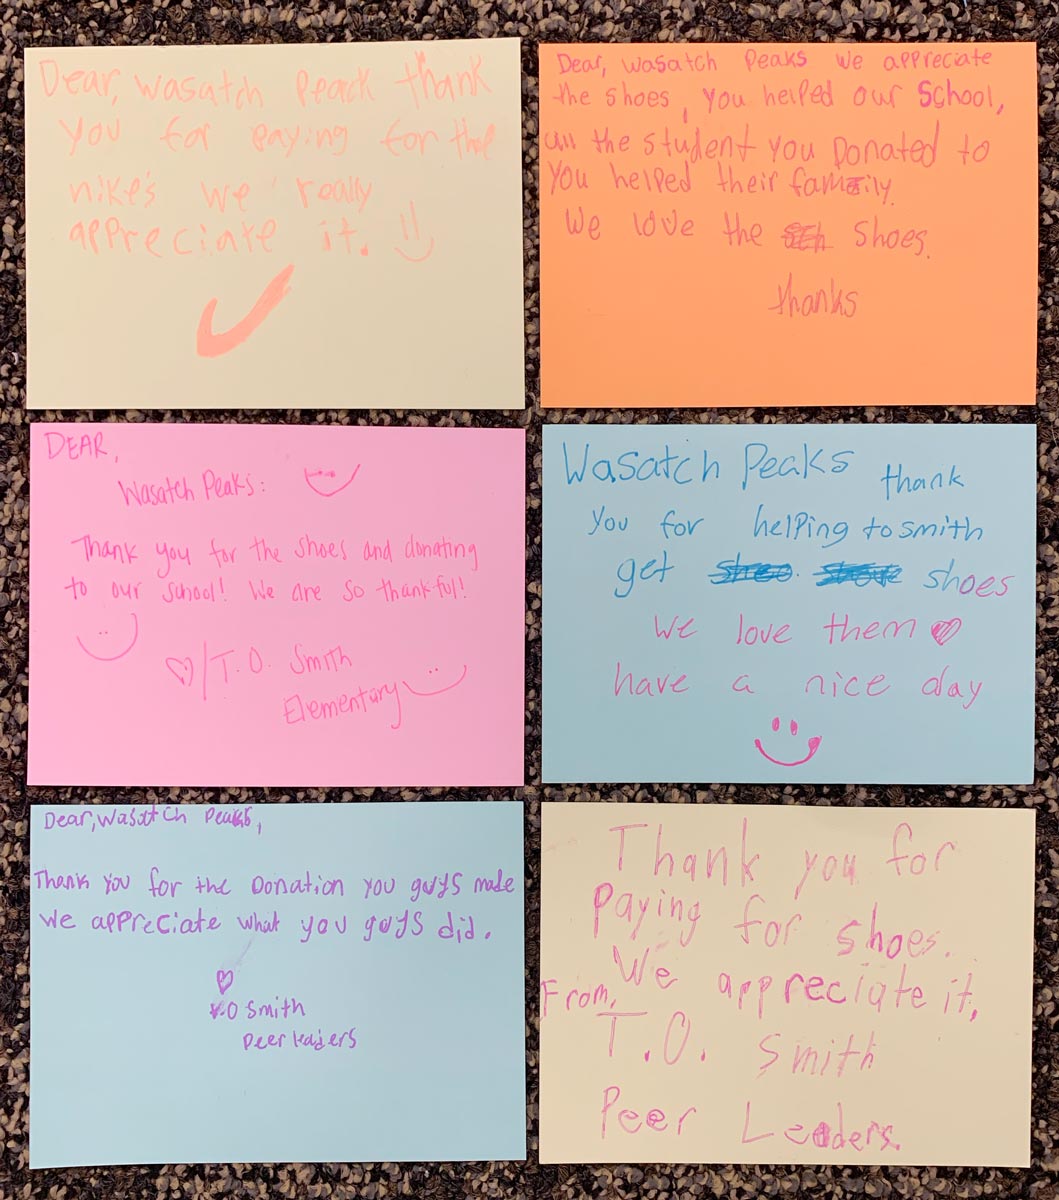 Dear, Wasatch Peack thank
you for paying for the
nike's we really
appreciate it.
Dear, Wasatch Peaks we appreciate
the shoes, you helped our School,
all the student you Donated to
You helped their family.
We love the shoes.
thanks
DEAR,
Wasatch Peaks:
Thank you for the shoes and donating
to our school! We are so thankful!
T.O. Smith
Elementary
Wasatch Peaks thank
you for helping to smith
get shoes
We love them
have a nice day
Dear, Wasatch Peaks,
Thank you for the Donation you guys made
we appreciate what you guys did.
T.O Smith
Peer leaders
Thank you for
paying for shoes.
We appreciate it,
From,
T.O. Smith
Peer Leaders.